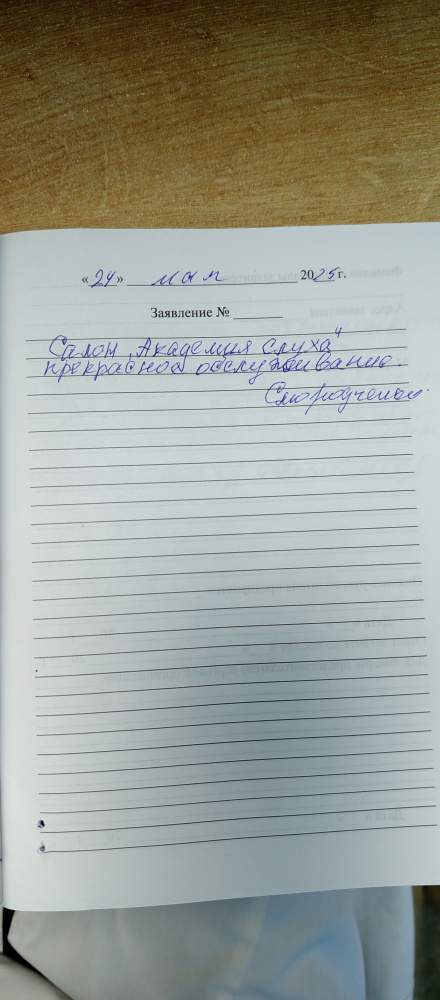 «24» мая 2025 г.
Заявление №
Салон "Академия слуха"
прекрасное обслуживание.